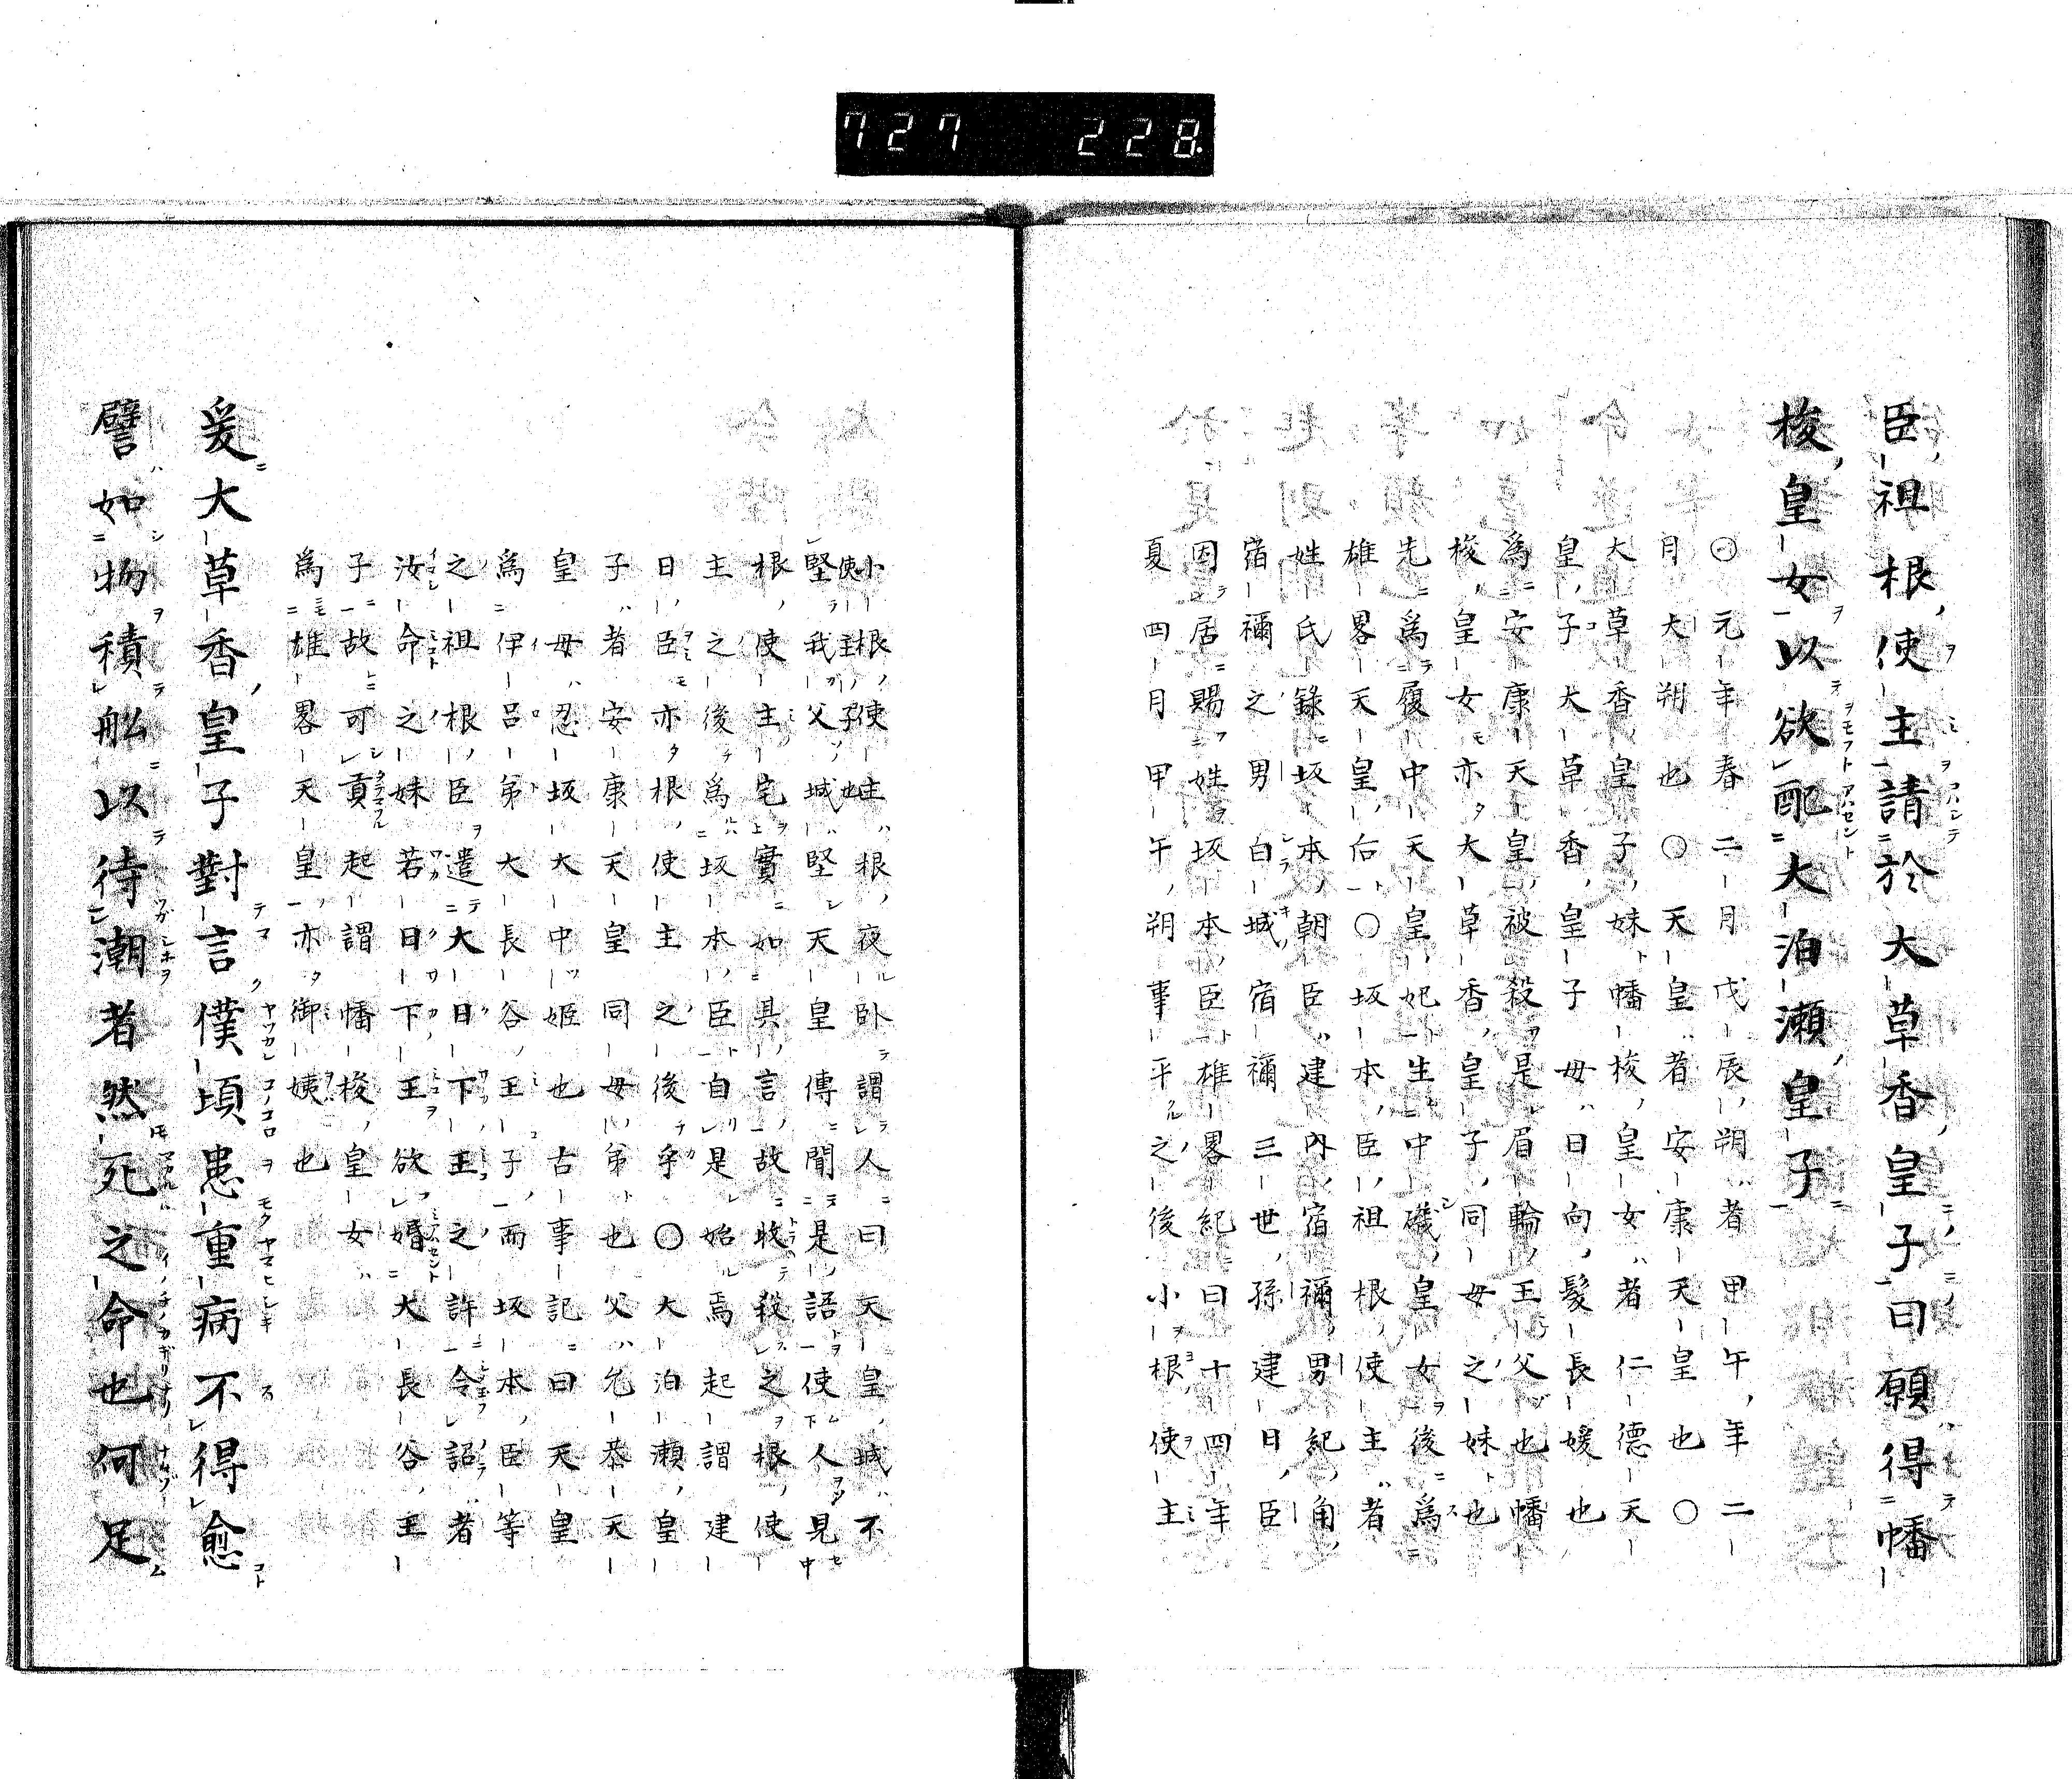 727 228
臣祖根使主請於大草香皇子曰願得幡
梭皇女以欲配大泊瀬皇子
〇元年春二月戊辰朔者甲午年二
月大朔也〇天皇者安康天皇也〇
大草香皇子妹幡梭皇女者仁德天
皇子大草香皇子母日向髮長媛也
為安康天皇被殺是眉輪王父也幡
梭皇女亦大草香皇子同母之妹也
先為履中天皇妃生中磯皇女後為
雄畧天皇后〇坂本臣祖根使主者
姓氏錄坂本朝臣建內宿禰男紀角
宿禰之男白城宿禰三世孫建日臣
因居賜姓坂本臣雄畧紀曰十四年
夏四月甲午朔事平之後小根使主
小根使主根夜臥謂人曰天皇城不
使主子也
堅我父城堅天皇傳聞是語使人見
根使主宅實如其言故收殺之根使
主之後為坂本臣自是始焉起謂建
日臣亦根使主之後乎〇大泊瀬皇
子者安康天皇同母弟也父允恭天
皇母忍坂大中姬也古事記曰天皇
為伊呂弟大長谷王子而坂本臣等
之祖根臣遣大日下王之許令詔者
汝命之妹若日下王欲婚大長谷王
子故可貢起謂幡梭皇女
為雄畧天皇亦御姨也
爰大草香皇子對言僕頃患重病不得愈
譬如物積舩以待潮者然死之命也何足